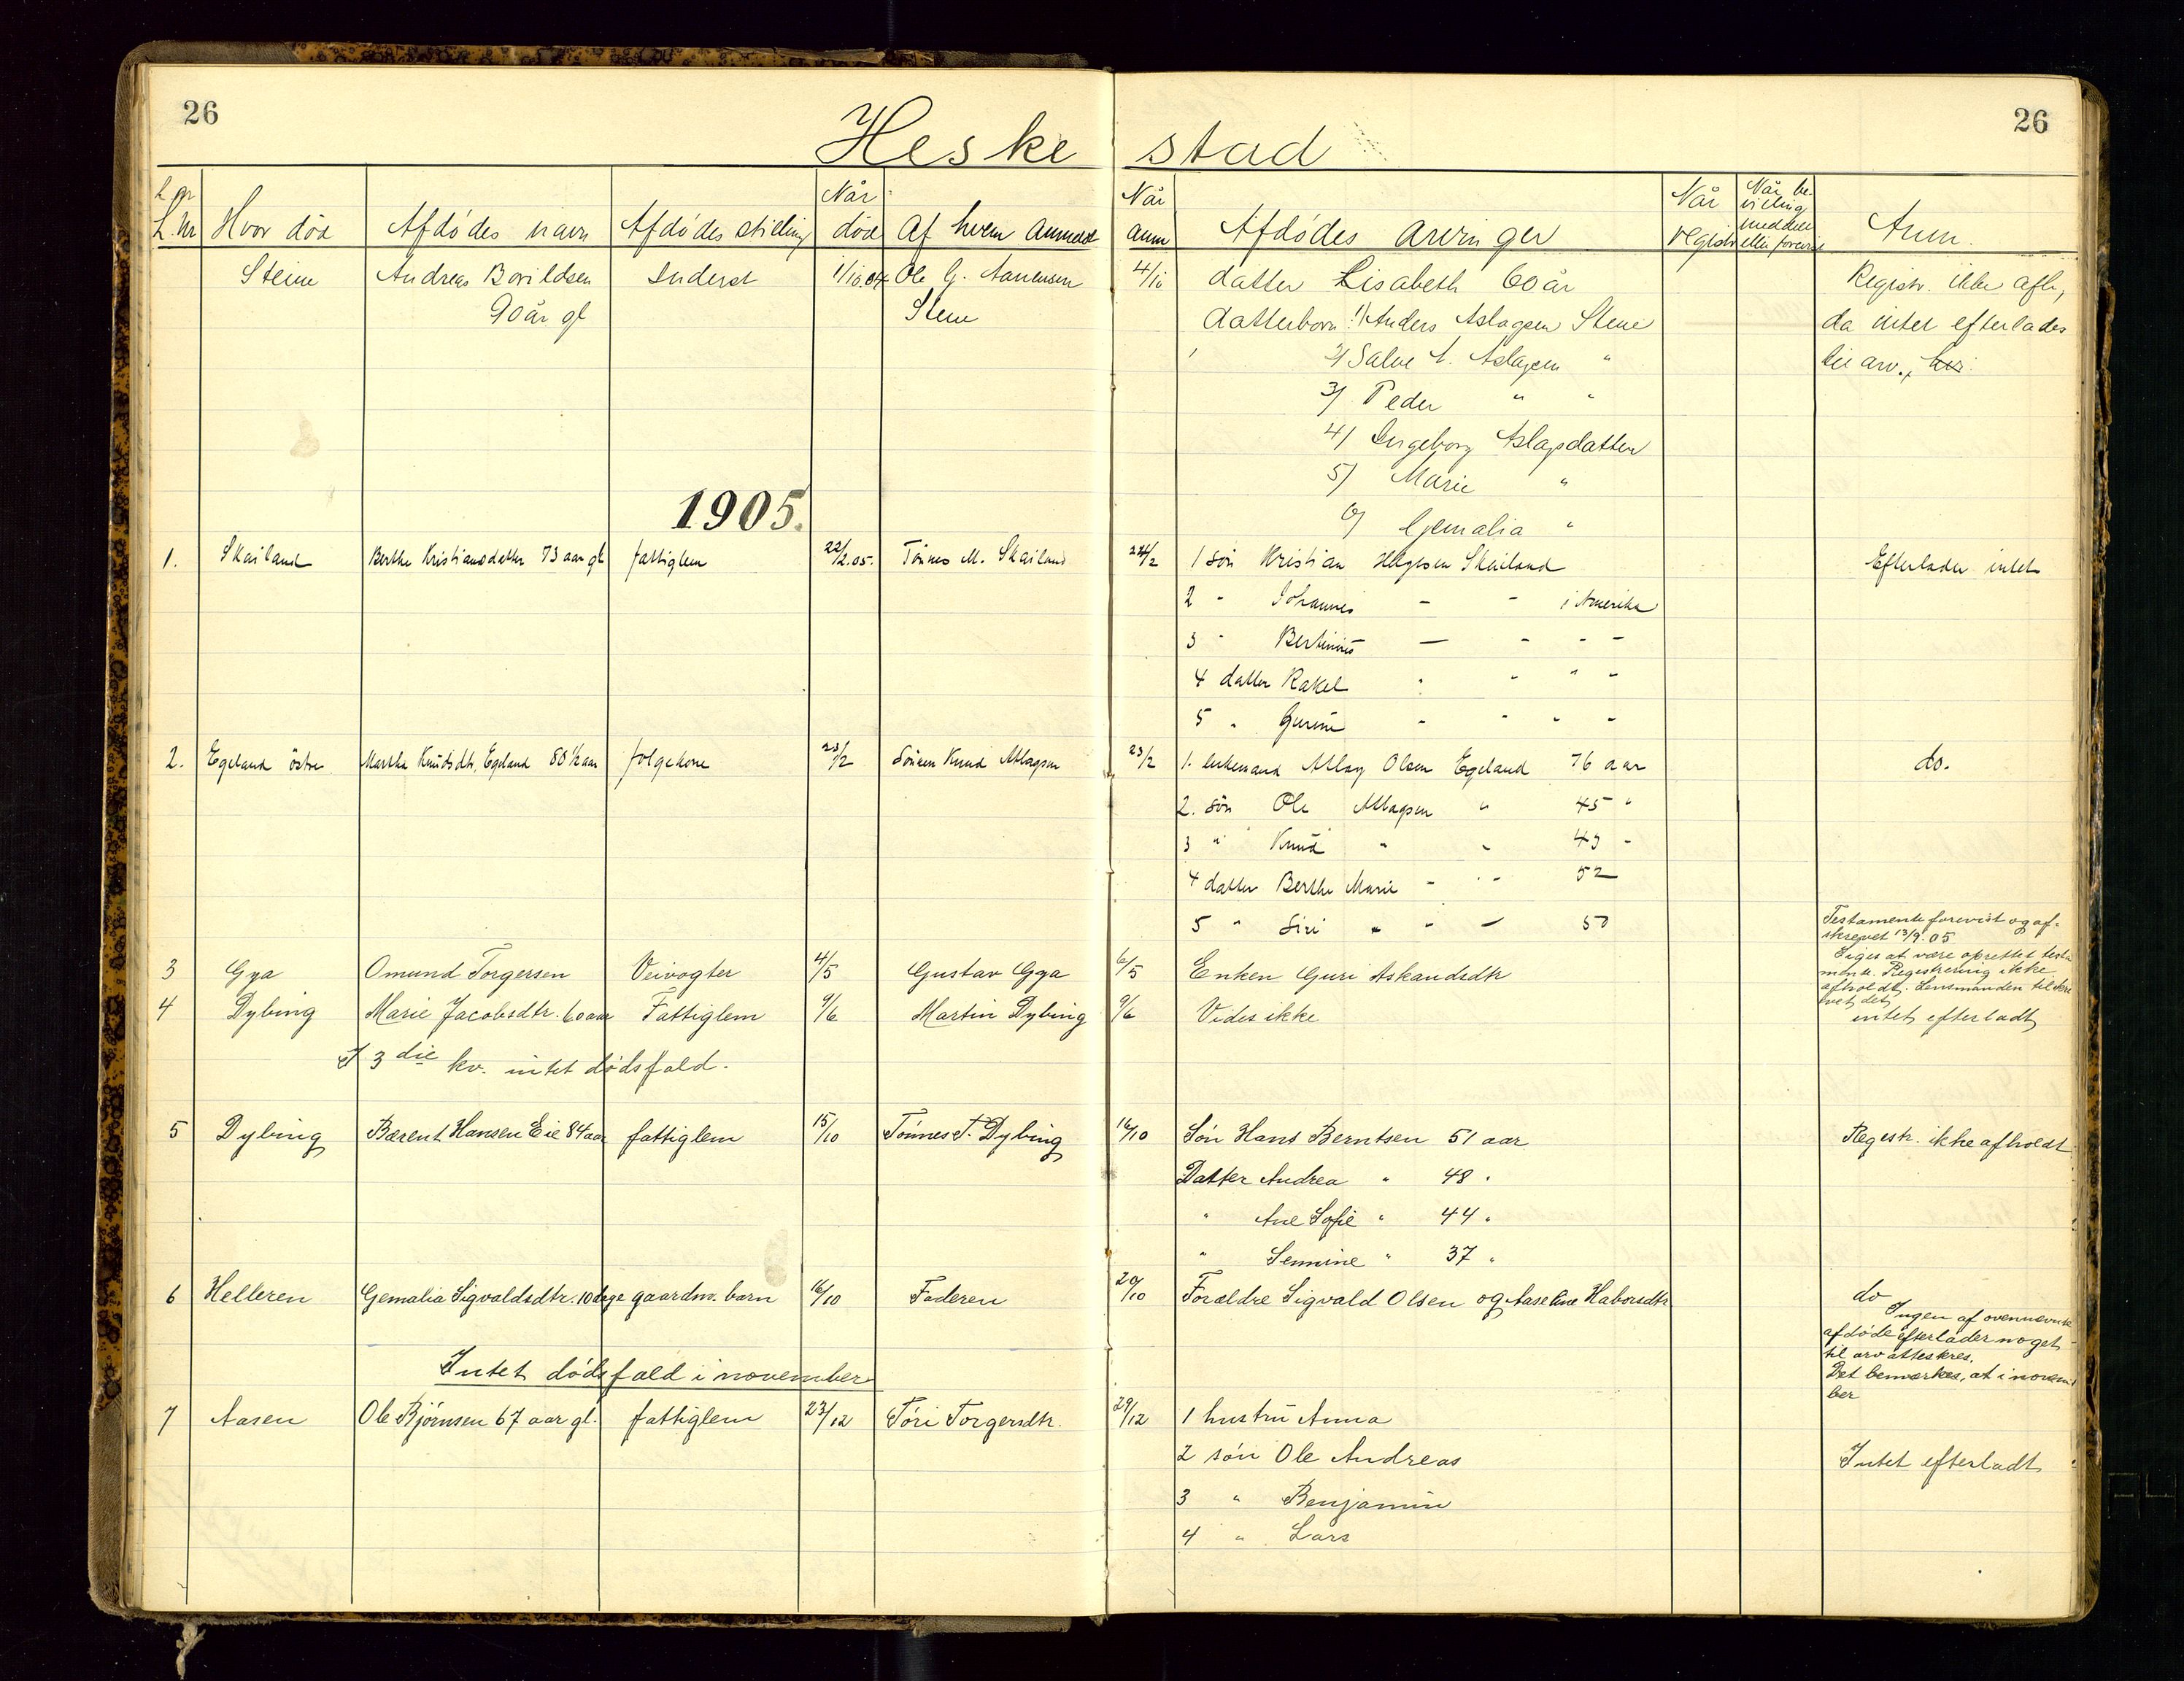 26
26
Heskestad
L.nr Hvor død Afdødes navn Afdødes stilling Når død Af hvem anmeldt Når anm Afdødes arvinger Når registr Når bevilling meddelt eller forevist Anm.
Steine Andreas Bovildsen Inderst 1/10.04 Ole G. 4/10 datter Lisabeth 60 år Registr. ikke afh,
90 år gl Steine datterbørn: 1/ Anders Aslagsen Steine da intet efterlades
2/ Salve A. Aslagsen " til arv.
3/ Peder " "
4/ Ingeborg Aslagsdatter
5/ Marie "
6/ Gemalia "
1905.
1. Skailand Berthe Kristiansdatter 73 aar gl fattiglem 22/2.05. Tønnes M. Skailand 24/2 1 søn Kristian Helgesen Skailand Efterlader intet
2 - Johannes - - i Amerika
3 - Bertinius - - - -
4 datter Rakel - - - -
5 " Gurine - - - -
2. Egeland østre Martha Knudsdtr. Egeland 80 1/2 aar folgekone 23/2 Sønnen Knud Atlagsen 23/2 1. enkemand Atlag Olsen Egeland 76 aar do.
2. søn Ole Atlagsen " 45 "
3 " Knud " " 43 -
4 datter Berthe Marie - - - 52
5 " Siri " " - 50
Testamente forevist og afskrevet 13/9.05
3 Gya Omund Torgersen Veivogter 4/5 Gustav Gya 6/5 Enken Guri Askandsdtr Siges at være oprettet testamente. Registrering ikke afholdt. Lensmanden tilskrevet det
4 Dybing Marie Jacobsdtr. 60 aar Fattiglem 9/6 Martin Dybing 9/6 Vides ikke intet efterladt
I 3die kv. intet dødsfald.
5 Dybing Bærent Hansen Eie 84 aar fattiglem 15/10 Tønnes T. Dybing 16/10 Søn Hans Berntsen 51 aar Registr. ikke afholdt
Datter Andrea " 48 "
" Ane Sofie " 44 "
" Semine " 37 "
6 Helleren Gemalia Sigvaldsdtr. 10 dage gaardm. barn 16/10 Faderen 20/10 Forældre Sigvald Olsen og Aaseline Haborsdtr do
Ingen af ovennævnte
afdøde efterlader noget
til arv atteskres.
Det bemærkes, at i november
Intet dødsfald i november
7 Aasen Ole Bjørnsen 67 aar gl. fattiglem 23/12 Tøri Torgersdtr. 29/12 1 hustru Anna
2 søn Ole Andreas Intet efterladt
3 " Benjamin
4 " Lars